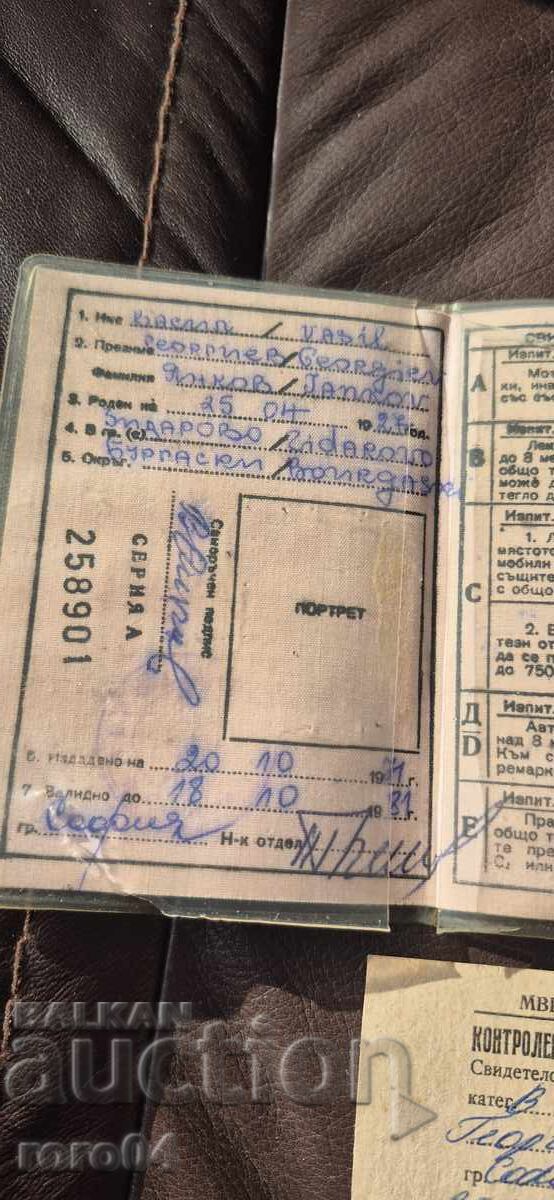 1. Име Васил / VASIL
2. Презиме Георгиев / Georgiev
Фамилия Янков / Jankov
3. Роден на 25 04 19 год.
4. В гр. (с) Зидарово / Zidarovo
5. Окръг Бургаски / Bourgaski
258901
СЕРИЯ А
Саморъчен подпис
ПОРТРЕТ
6. Издадено на 20 10 1971 г.
7. Валидно до 18 10 1981 г.
гр. София Н-к отдел
Изпит.
A
Мот
ки, инв
със бъс
Изпит.
B
Лек
до 8 ме
общо т
може д
тегло д
Изпит.
C
1. Л
мястото
мобили
същите
с общо
2. В
тези от
да се п
до 750
Изпит.
Д/D
Авт
над 8
Към с
ремарк
Изпит.
E
Пра
общо т
те пре
C, или
МВ
КОНТРОЛЕ
Свидетелс
катег. В
Георг
гр. Соф
BALKAN
auction
roro04